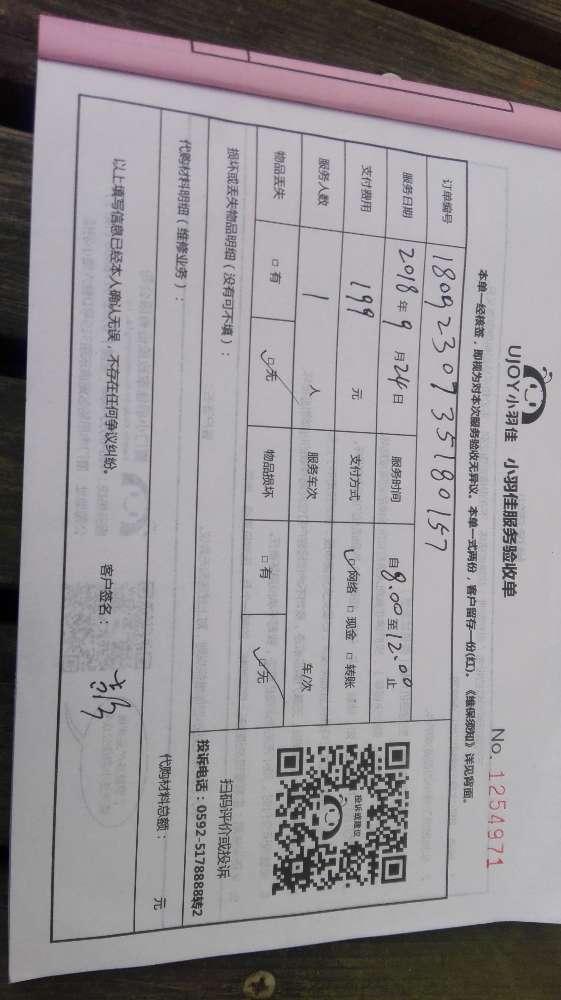 UJOY小羽佳 小羽佳服务验收单
No. 1254971
本单一经核签，即视为对本次服务验收无异议。本单一式两份，客户留存一份(红)。《维保须知》详见背面。
订单编号 1809230735180157
服务日期 2018年9月24日 服务时间 自8:00至12:00止
支付费用 199 元 支付方式 ☑网络 □现金 □转账
服务人数 1 人 服务车次 车/次
物品丢失 □有 ☑无 物品损坏 □有 ☑无
投诉或建议
扫码评价或投诉
投诉电话：0592-5178888转2
损坏或丢失物品明细（没有可不填）：
代购材料明细（维修业务）：
代购材料总额： 元
以上填写信息已经本人确认无误，不存在任何争议纠纷。 客户签名：